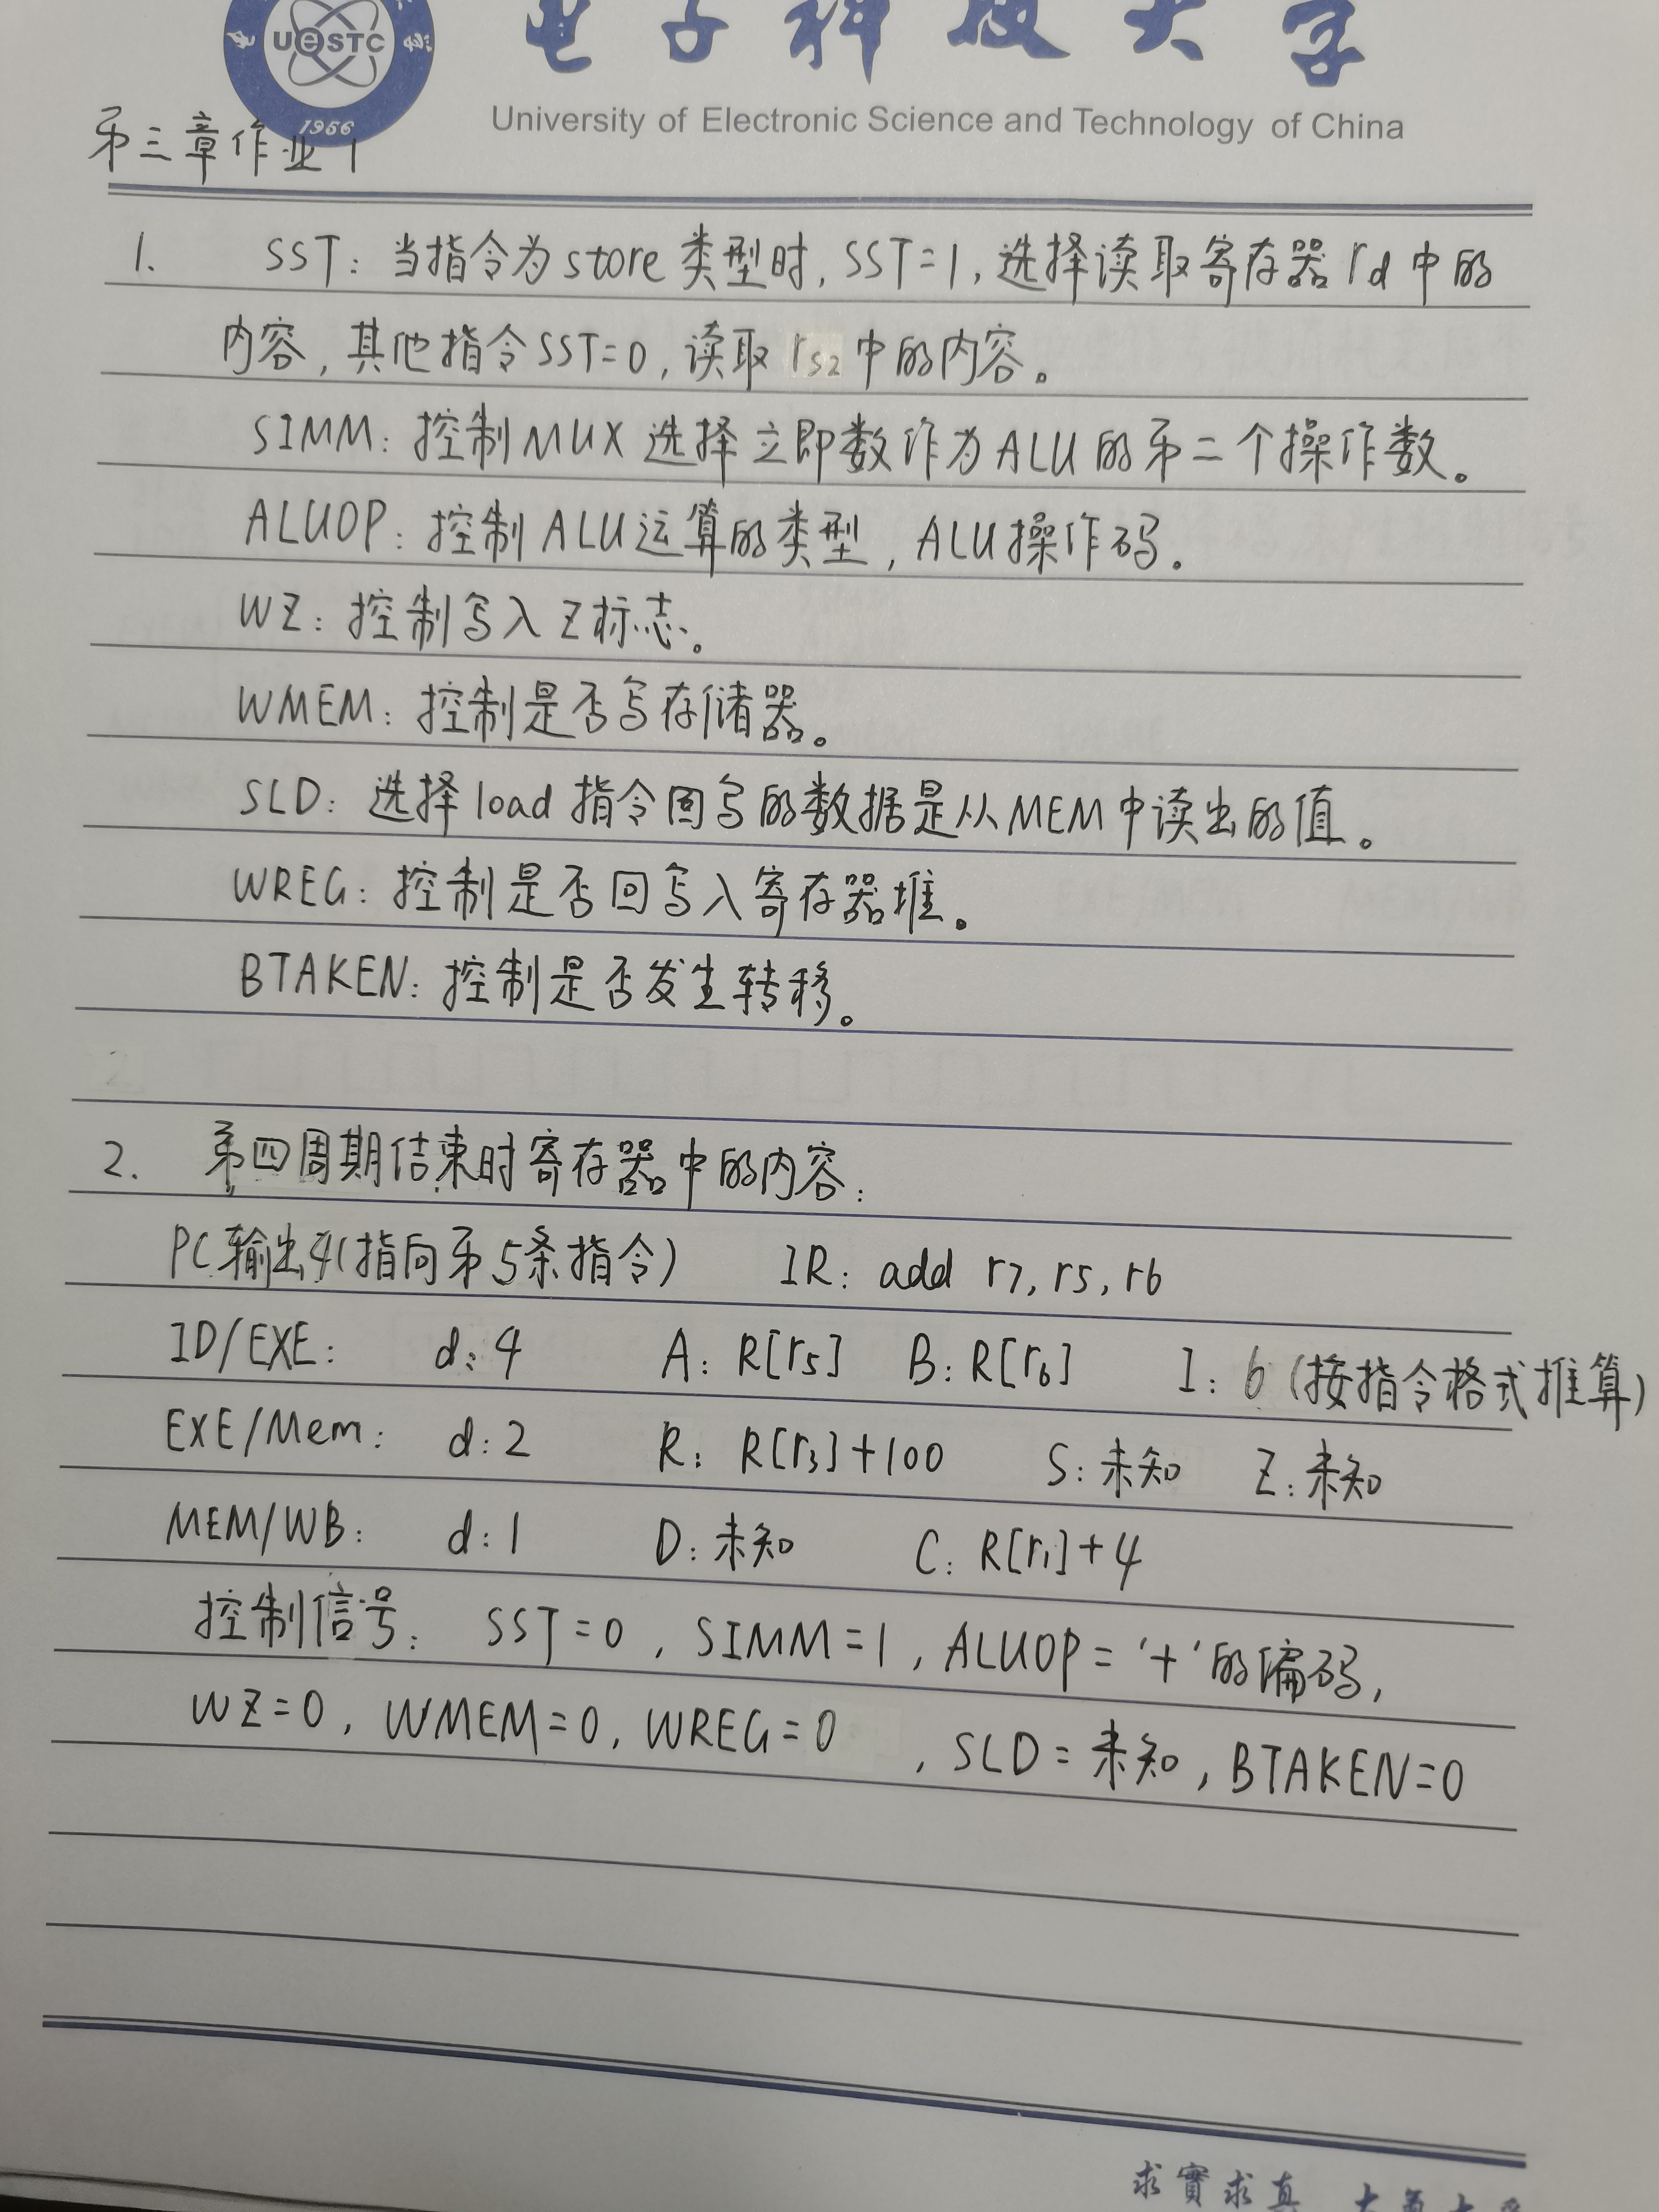 UeSTC
1956
电子科技大学
University of Electronic Science and Technology of China
第三章作业1
1. SST: 当指令为store类型时, SST=1, 选择读取寄存器rd中的
内容, 其他指令SST=0, 读取rs2中的内容。
SIMM: 控制MUX选择立即数作为ALU的第二个操作数。
ALUOP: 控制ALU运算的类型, ALU操作码。
WZ: 控制写入Z标志。
WMEM: 控制是否写存储器。
SLD: 选择load指令回写的数据是从MEM中读出的值。
WREG: 控制是否回写入寄存器堆。
BTAKEN: 控制是否发生转移。
2. 第四周期结束时寄存器中的内容:
PC输出4(指向第5条指令) IR: add r7, r5, r6
ID/EXE: d: 4 A: R[r5] B: R[r6] I: 6 (按指令格式推算)
EXE/Mem: d: 2 R: R[r3]+100 S: 未知 Z: 未知
MEM/WB: d: 1 D: 未知 C: R[r1]+4
控制信号: SST=0, SIMM=1, ALUOP='+'的编码,
WZ=0, WMEM=0, WREG=0, SLD=未知, BTAKEN=0
求實求真